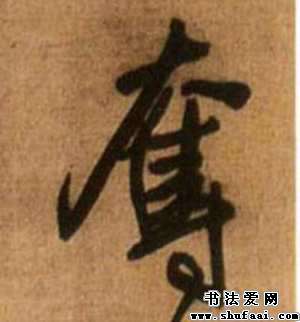 奮
书法爱网
www.shufaai.com